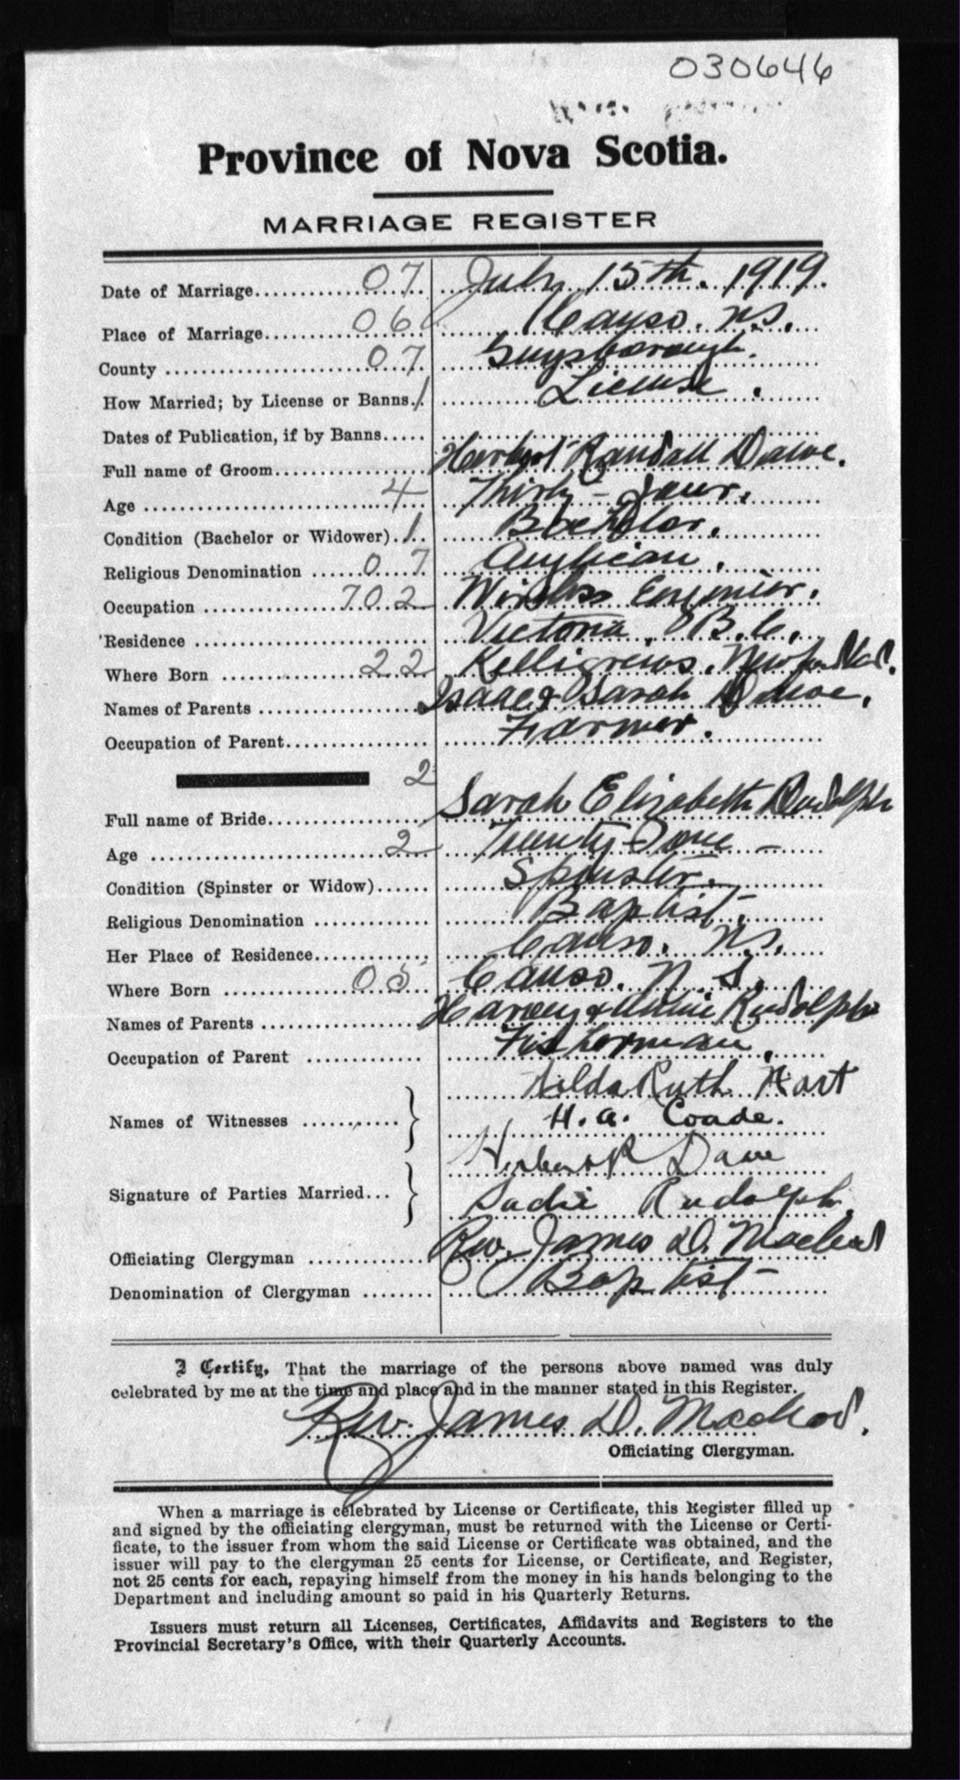 030646
Province of Nova Scotia.
MARRIAGE REGISTER
Date of Marriage 07 July 15th. 1919.
Place of Marriage 06 Canso. N.S.
County 07 Guysborough.
How Married; by License or Banns. 1 License.
Dates of Publication, if by Banns
Full name of Groom Herbert Randall Dawe.
Age 4 Thirty-four.
Condition (Bachelor or Widower) 1 Bachelor.
Religious Denomination 07 Anglican.
Occupation 702 Wireless Engineer.
Residence Victoria, B.C.
Where Born 22 Kelligrews, Newfoundland.
Names of Parents Isaac & Sarah Dawe.
Occupation of Parent Farmer.
2
Full name of Bride Sarah Elizabeth Rudolph
Age 2 Twenty-Four
Condition (Spinster or Widow) Spinster.
Religious Denomination Baptist.
Her Place of Residence Canso. N.S.
Where Born 05 Canso. N. S.
Names of Parents Harvey & Annie Rudolph
Occupation of Parent Fisherman.
Names of Witnesses } Hilda Ruth Hart
H. A. Coade.
Signature of Parties Married } Herbert R Dawe
Sadie Rudolph.
Officiating Clergyman Rev. James D. Macleod
Denomination of Clergyman Baptist
I Certify, That the marriage of the persons above named was duly
celebrated by me at the time and place and in the manner stated in this Register.
Rev. James D. Macleod.
Officiating Clergyman.
When a marriage is celebrated by License or Certificate, this Register filled up
and signed by the officiating clergyman, must be returned with the License or Certi-
ficate, to the issuer from whom the said License or Certificate was obtained, and the
issuer will pay to the clergyman 25 cents for License, or Certificate, and Register,
not 25 cents for each, repaying himself from the money in his hands belonging to the
Department and including amount so paid in his Quarterly Returns.
Issuers must return all Licenses, Certificates, Affidavits and Registers to the
Provincial Secretary's Office, with their Quarterly Accounts.